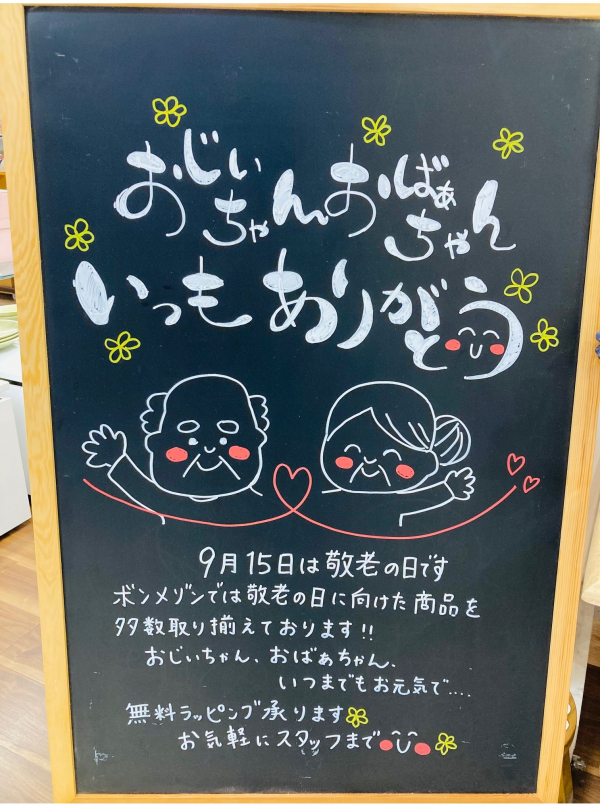 おじぃちゃんおばぁちゃん
いつもありがとう
9月15日は敬老の日です
ボンメゾンでは敬老の日に向けた商品を
多数取り揃えております!!
おじいちゃん、おばあちゃん、
いつまでもお元気で....
無料ラッピング承ります
お気軽にスタッフまで